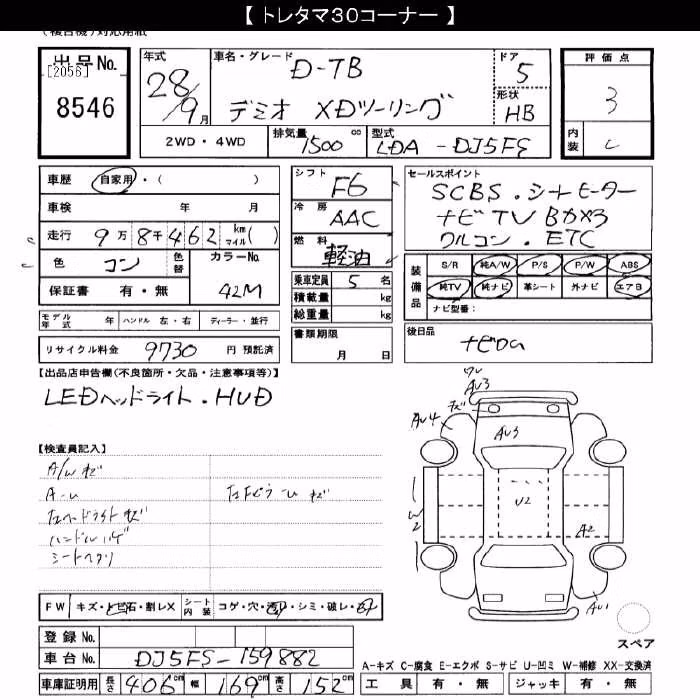 【 トレタマ30コーナー 】
出品No.
[2056]
8546
年式
28/9月
車名・グレード
D-TB
デミオ XDツーリング
ドア
5
形状
HB
評価点
3
内装
C
2WD・4WD
排気量
1500 cc
型式
LDA-DJ5FS
車歴 自家用・( )
車検 年 月
走行 9万8千462 km マイル( )
色 コン 色替 カラーNo.
42M
保証書 有・無
モデル年式 年 ハンドル 左・右 ディーラー・並行
リサイクル料金 9730 円 預託済
シフト
F6
冷房
AAC
燃料
軽油
乗車定員 5 名
積載量 kg
総重量 kg
書類期限
月 日
セールスポイント
SCBS.シートヒーター
ナビTV Bカメラ
ETC
装備品
S/R 純A/W P/S P/W ABS
純TV 純ナビ 革シート 外ナビ エアB
ナビ型番:
後日品
【出品店申告欄(不良箇所・欠品・注意事項等)】
LEDヘッドライト.HUD
【検査員記入】
A/W キズ
左ヘッドライト キズ
ハンドル ハゲ
シートヘタリ
FW キズ・飛石・割レX シート内装 コゲ・穴・ ・シミ・破レ・
登録No.
車台No. DJ5FS-159882
車庫証明用 長さ 406cm 幅 169cm 高さ 152cm
AU3
AU4
キズ
AU3
U2
W2
A2
AU1
スペア
A-キズ C-腐食 E-エクボ S-サビ U-凹ミ W-補修 XX-交換済
工具 有・無 ジャッキ 有・無